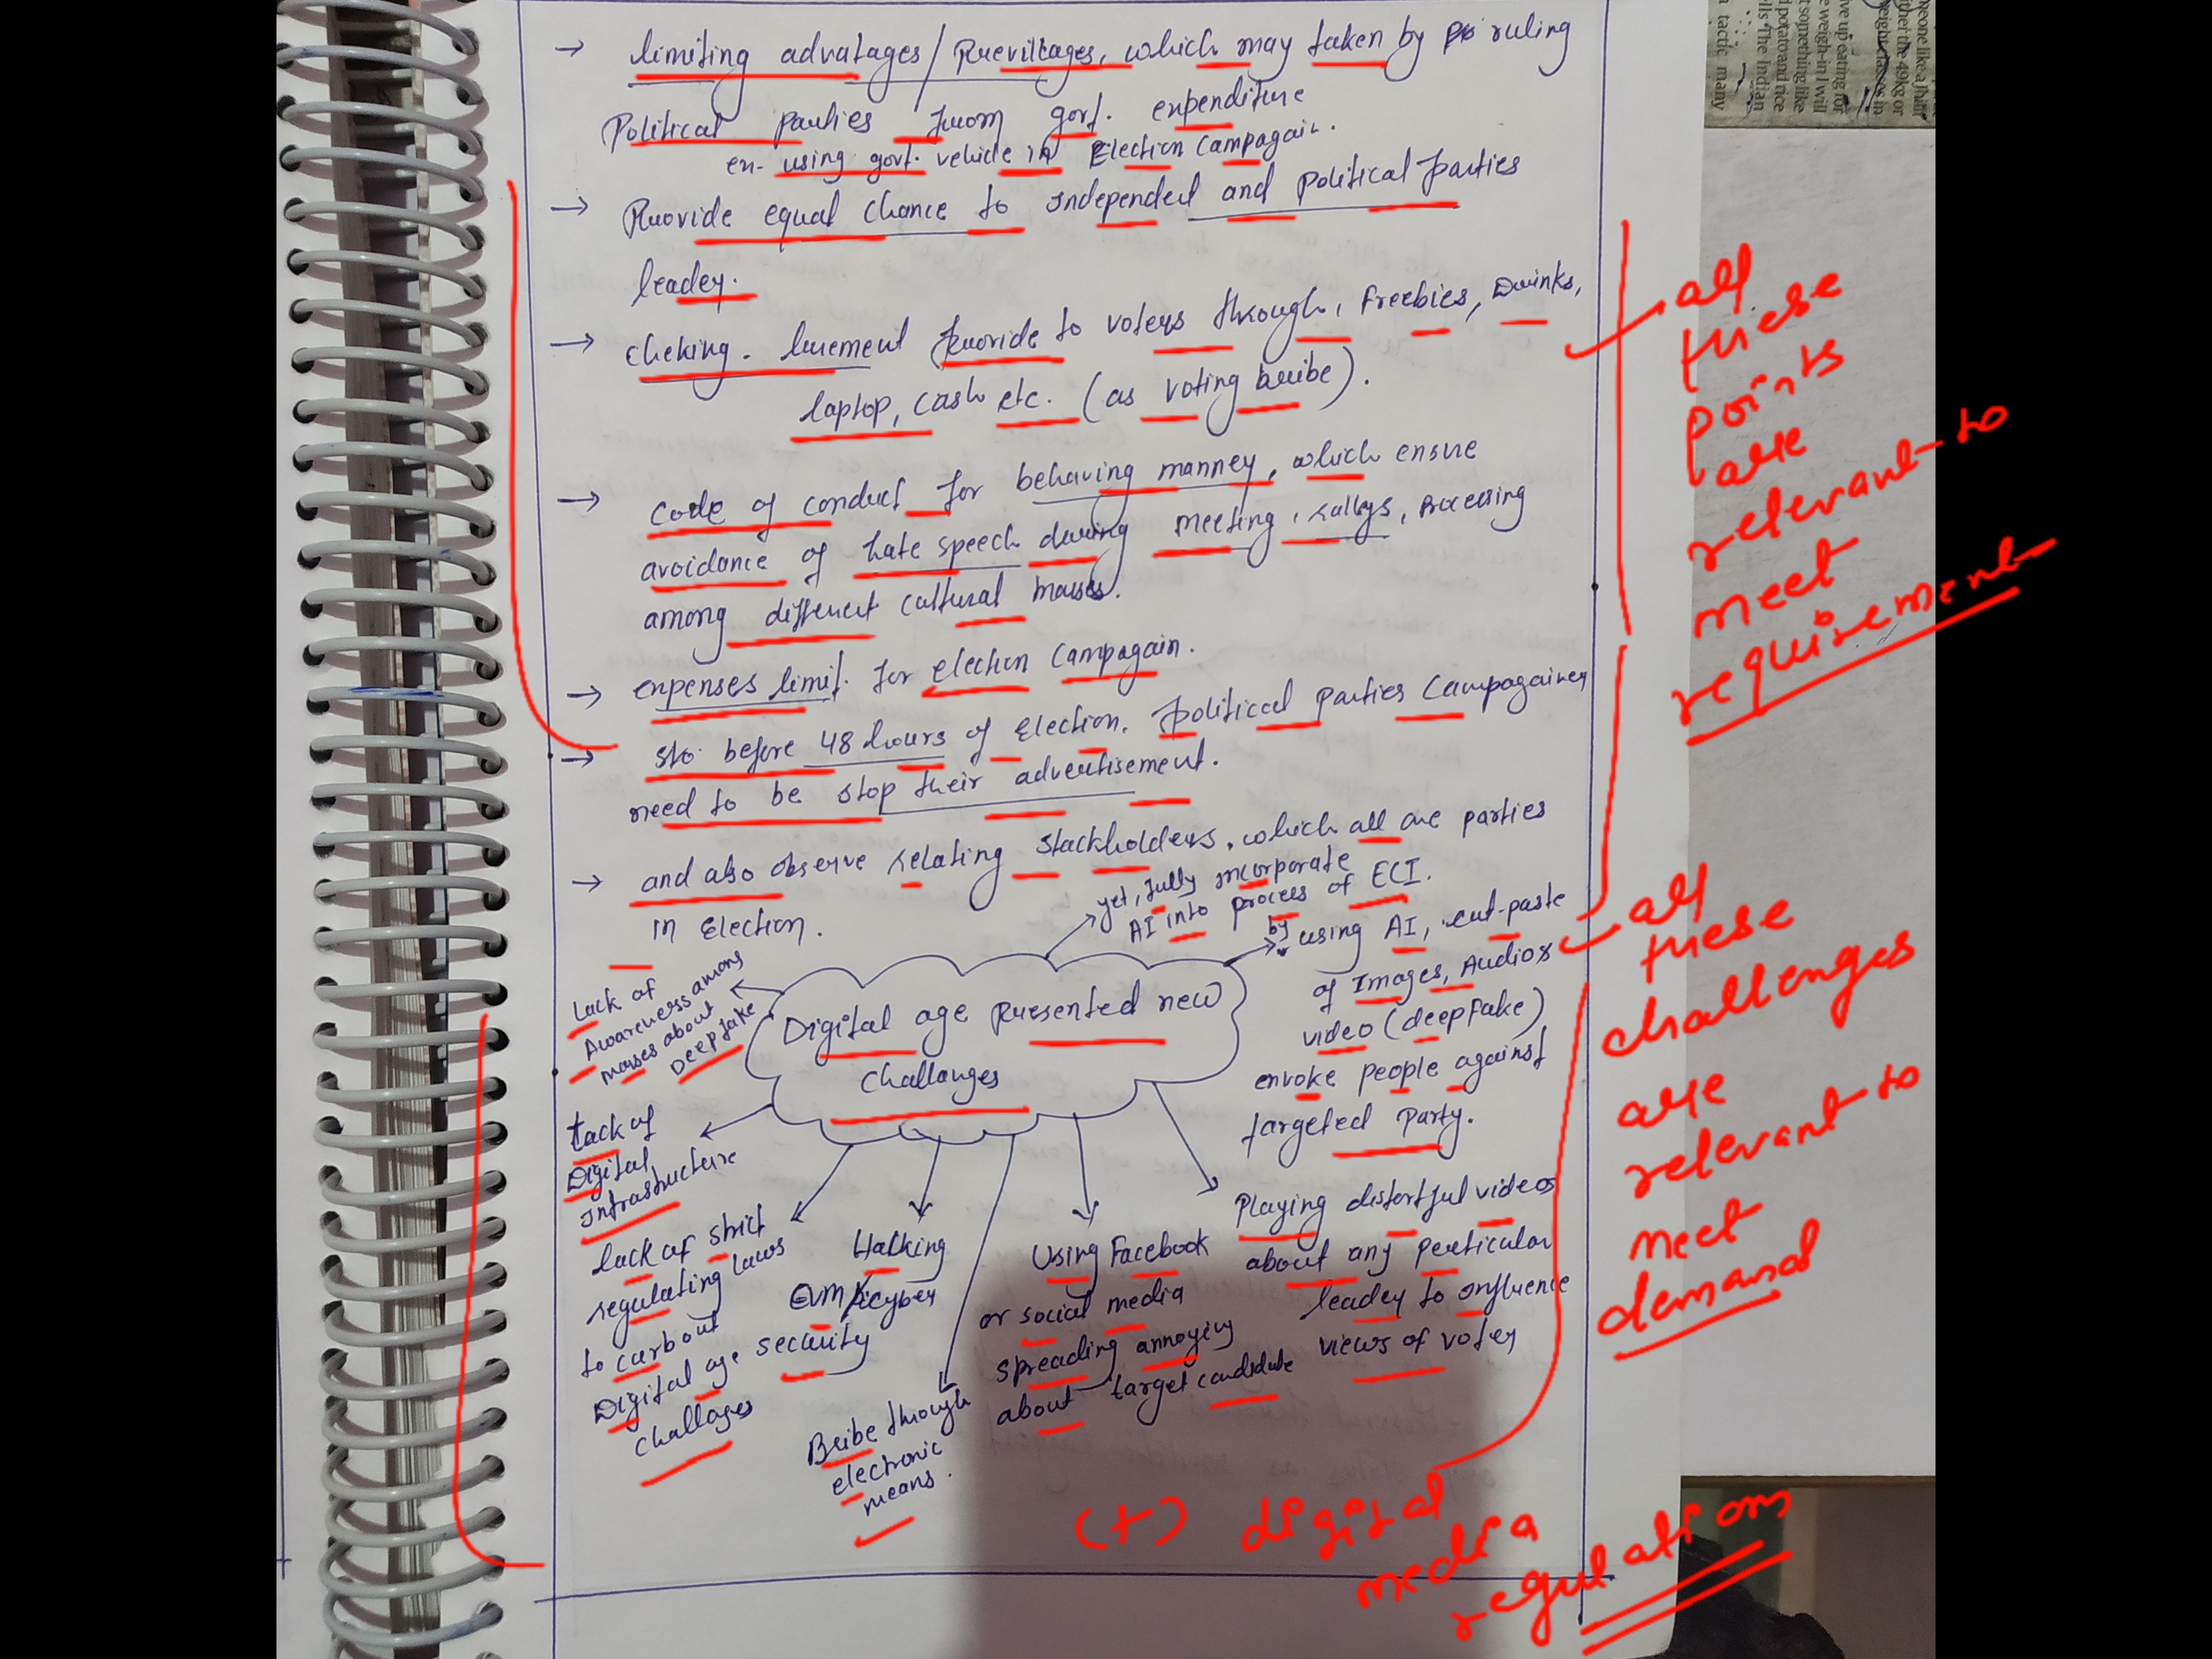 → limiting advatages/Previllages, which may taken by ruling
Political parties from govt. expenditure
ex- using govt. vehicle in Election Campagain.
→ Provide equal chance to Independed and political parties
leader.
→ cheking. lurement provide to voters through, freebies, Drinks,
laptop, cash etc. (as voting bribe).
→ code of conduct for behaving manner, which ensure
avoidance of hate speech during meeting, ralleys, Processing
among different cultural masses.
→ expenses limit. for election Campagain.
→ sto. before 48 hours of election. political parties Campagainer
need to be stop their advertisement.
→ and also observe relating stackholders, which all are parties
in Election.
yet, fully incorporate
AI into process of ECI.
by using AI, cut-paste
of Images, Audios
video (deepfake)
envoke people against
targeted party.
Lack of
Awareness among
masses about
Deepfake
Digital age presented new
challanges
Lack of
Digital
Infrastructure
lack of strict
regulating laws
to carbout
Digital age
challages
Hacking
EVM/cyber
security
Bribe through
electronic
means.
Using Facebook
or social media
spreading annoying
about target candidate
Playing distortful videos
about any perticular
leader to influence
views of voter
all
these
points
are
relevant to
meet
requirement
all
these
challenges
are
relevant to
meet
demand
(+) digital
media
regulations
meone like a Jhulf
ither the 49kg or
ve up eating for
e weigh-in I will
t something like
d potato and rice
lls The Indian
a tactic many